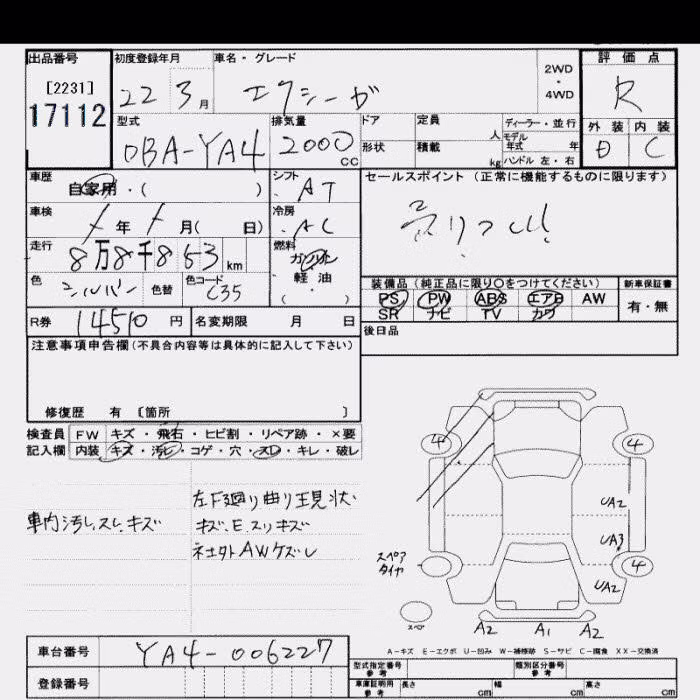 出品番号
[2231]
17112
初度登録年月
22 3月
車名・グレード
エクシーガ
2WD
・
4WD
評価点
R
外装 内装
D C
型式
DBA-YA4
排気量
2000 CC
ドア
形状
定員
人
積載
kg
ディーラー・並行
モデル
年式 年
ハンドル 左・右
車歴
自家用・( )
シフト
AT
セールスポイント (正常に機能するものに限ります)
売りつくし!!
車検
年 月( 日)
冷房
AC
走行
8万8千853km
燃料
ガソリン
軽油
(・)
色
シルバー
色替
色コード
C35
装備品 (純正品に限り○をつけてください)
PS PW ABS エアB AW
SR ナビ TV カワ
新車保証書
有・無
R券
14510円
名変期限 月 日
後日品
注意事項申告欄 (不具合内容等は具体的に記入して下さい)
修復歴 有 〔箇所 〕
検査員
記入欄
FW キズ・飛石・ヒビ割・リペア跡・×要
内装 キズ・汚れ・コゲ・穴・スレ・キレ・破レ
車内汚レ、スレ、キズ
左F廻り曲り現状
キズ、E、スリキズ
社外AWケズレ
4 4
UA2
UA3
スペア
タイヤ
4
UA2
スペア
A2 A1 A2
A-キズ E-エクボ U-凹み W-補修跡 S-サビ C-腐食 XX-交換済
車台番号
YA4-006227
登録番号
型式指定番号
参考
類別区分番号
参考
車庫証明用
参考
長さ cm 幅 cm 高さ cm